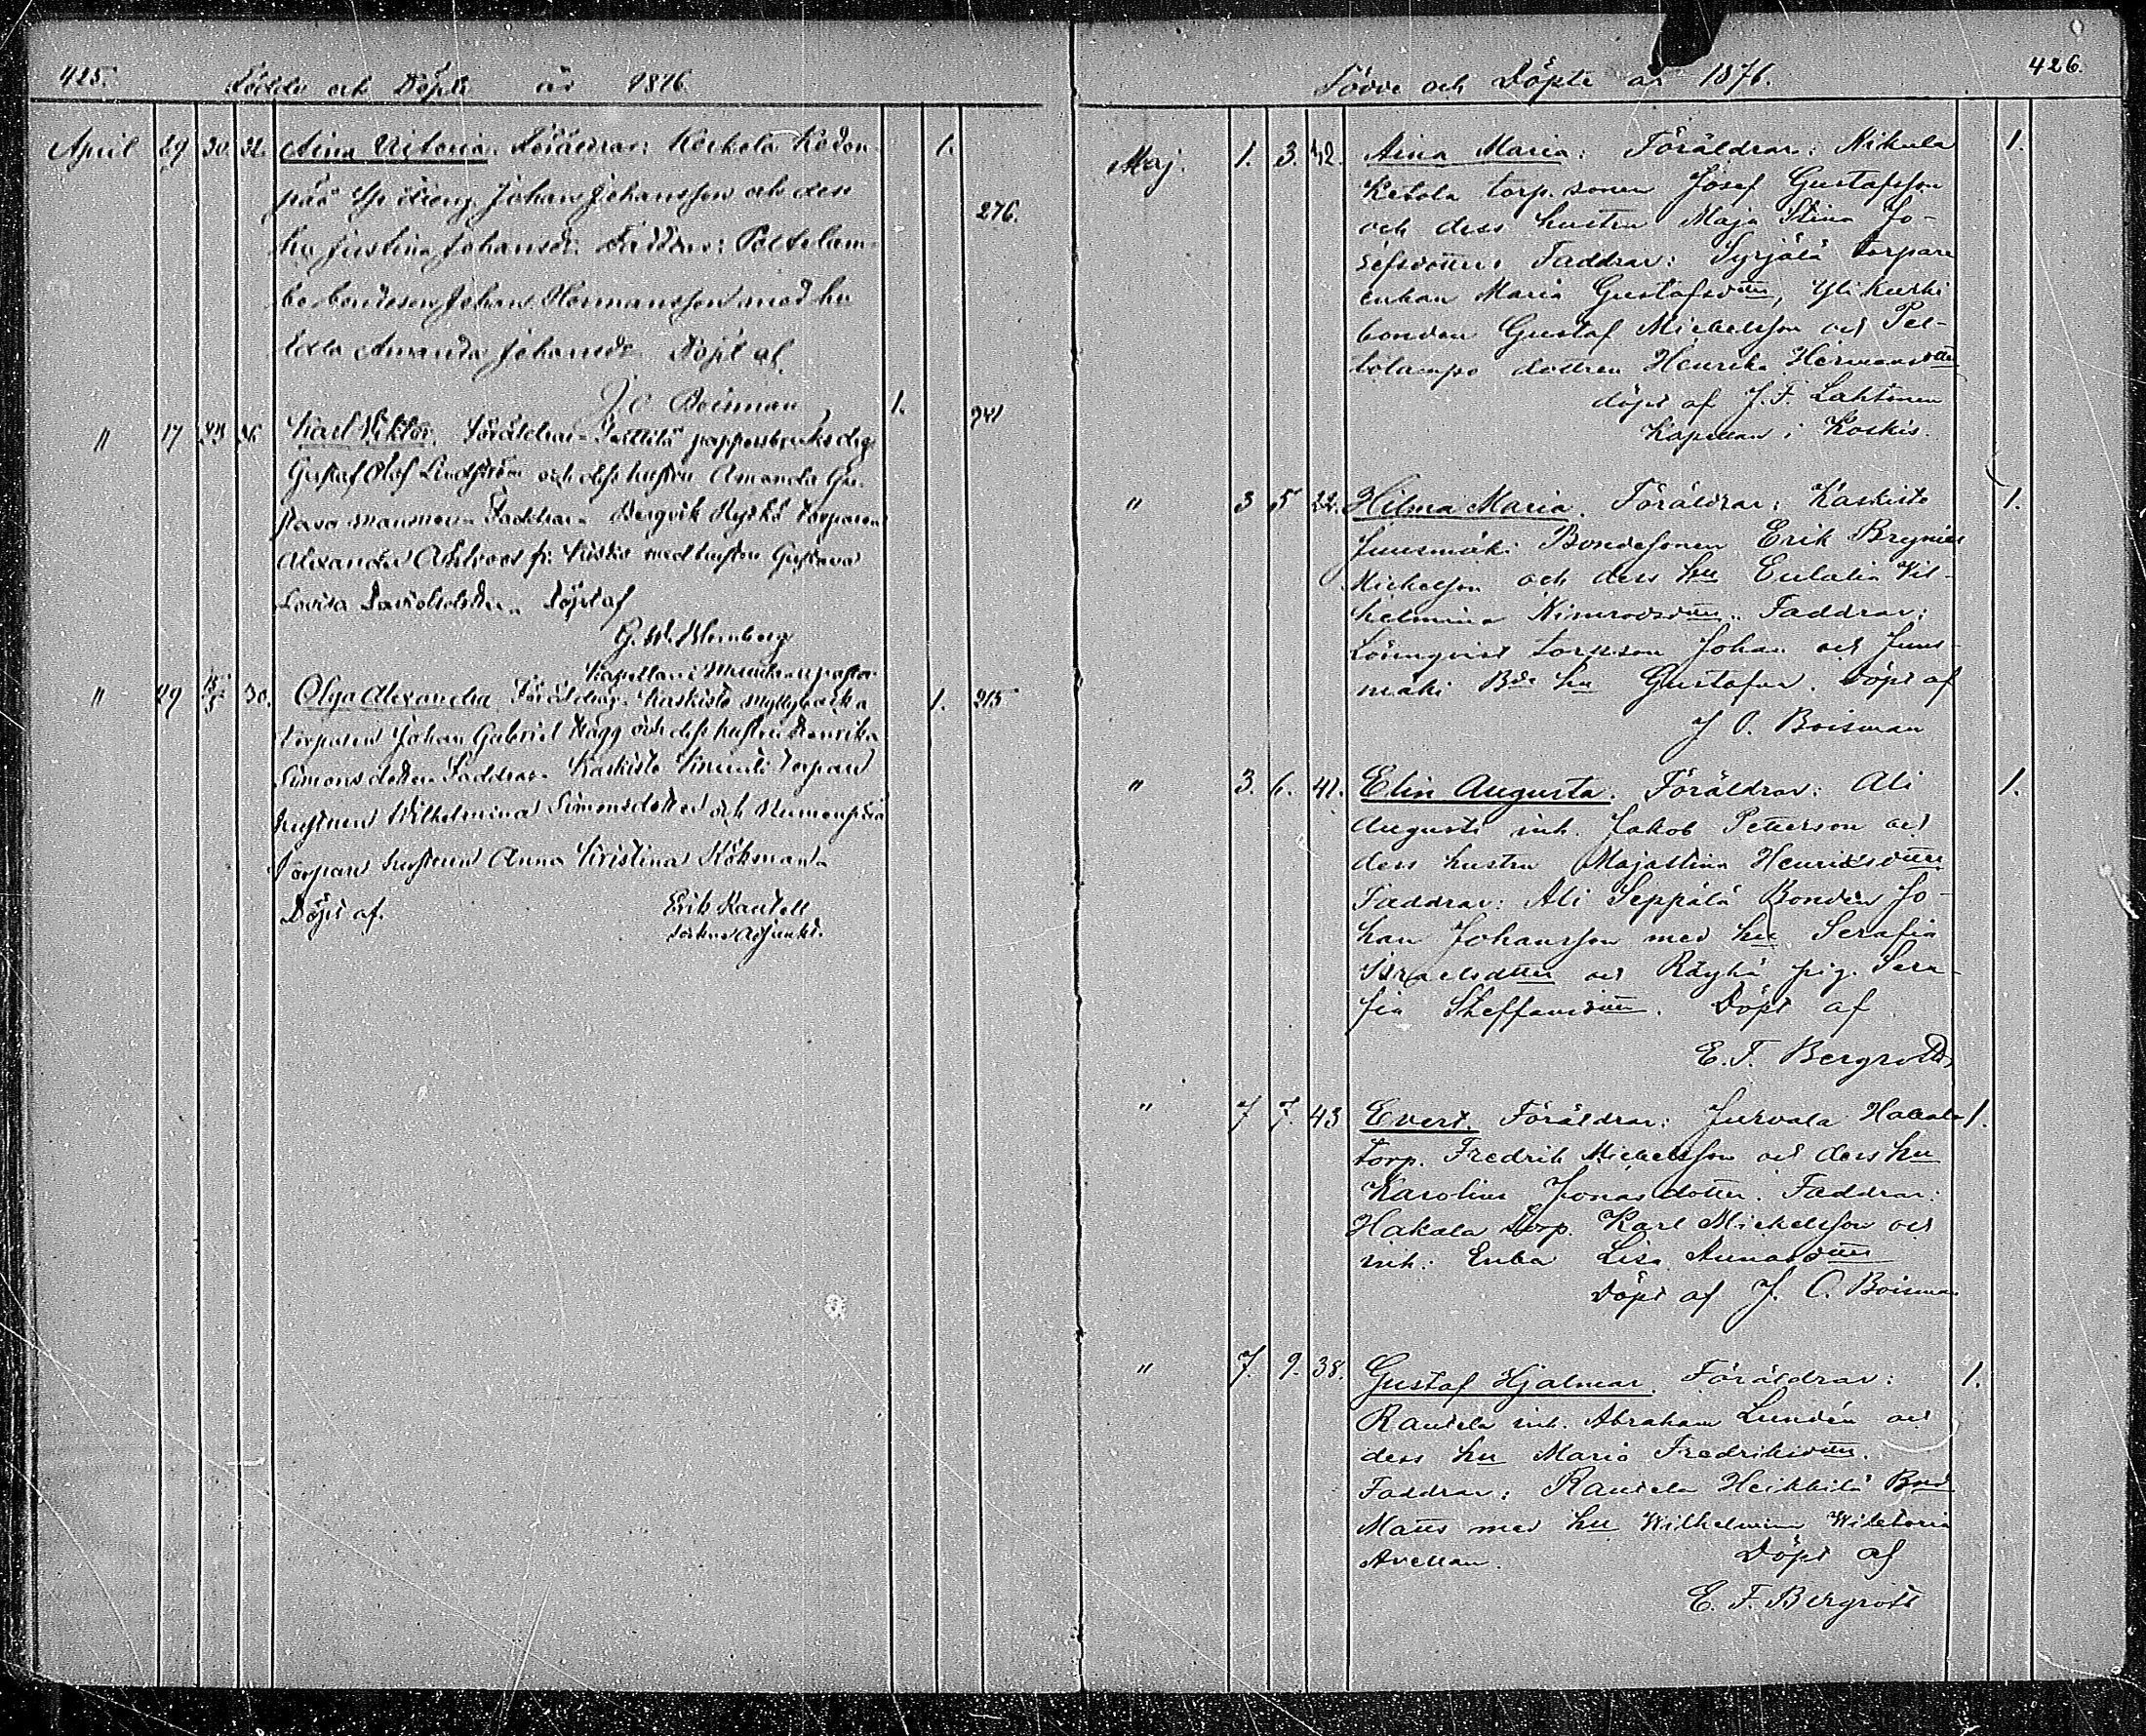 425. Födde och Döpte år 1876.
April 29 30. 32. Aina Victoria. Föräldrar: Keikola Kedon-
pää dräng Johan Johansson och dess
hu Justina Johansdr. Faddrar: Peltolam-
bo bondeson Johan Hermansson med hu
Amanda Johansdr. Döpt af
J. O. Boisman
1. 276.
" 17 23 36 Karl Viktor. Föräldrar: pappersbruksdrg
Gustaf Olof Lindström och dess hustru Amanda Gu-
stava Faddrar: Bergvik torparen
Alexander med hustru Gustava
Lovisa Döpt af
G. W.
Kapellan i
1. 241
" 29 30. Olga Alexandra. Föräldrar: Kaskisto
torparen Johan Gabriel Hägg och dess hustru Henrika
Simonsdotter. Faddrar: Kaskisto torpare
hustrun Wilhelmina Simonsdotter och Numenpää
torpare hustrun Anna Kristina Kökman.
Döpt af. Erik Rantell
Adjunkt.
1. 215
Födde och Döpte år 1876. 426.
Maj. 1. 3. 42. Aina Maria: Föräldrar: Nikula 1.
Ketola torp. sonen Josef Gustafsson
och dess hustru Maja Stina Jo-
sefsdotter. Faddrar: Syrjälä torpare
enkan Maria Gustafsdotter, Yli Kurki
bonden Gustaf Michelsson och Pel-
tolampo dottren Henrika Hermansdotter
döpt af J. F. Lahtinen
Kapellan i Koskis.
" 3 5 22. Hilma Maria. Föräldrar: Kaskisto 1.
Juusmäki Bondesonen Erik Brynier
Mickelsson och dess hu Eulalia Vil-
helmina Nimrodsdotter. Faddrar:
Lönnqvist torpson Johan och Juus-
mäki Bde hu Gustafva. Döpt af
J. O. Boisman
" 3. 6. 41. Elin Augusta. Föräldrar: Ali 1.
Augusti inh. Jakob Petterson och
dess hustru Majastina Henriksdotter
Faddrar: Ali Seppälä Bonden Jo-
han Johansson med hu Serafia
Israelsdotter och Räyhä pig. Sera-
fia Steffansdotter. Döpt af
E. F. Bergroth
" 7 7. 43 Evert. Föräldrar: Jurvala Hakala 1.
torp. Fredrik Michelsson och dess hu
Karolina Jonasdotter. Faddrar:
Hakala torp. Karl Mickelsson och
inh. Enka Lisa
Döpt af J. O. Boisman
" 7. 9. 38. Gustaf Hjalmar. Föräldrar: 1.
Rautela inh. Abraham Lundén och
dess hu Maria Fredriksdotter.
Faddrar: Rautela Heikkilä Bond
Matts med hu Wilhelmina Wiktoria
Avellan. Döpt af
E. F. Bergroth